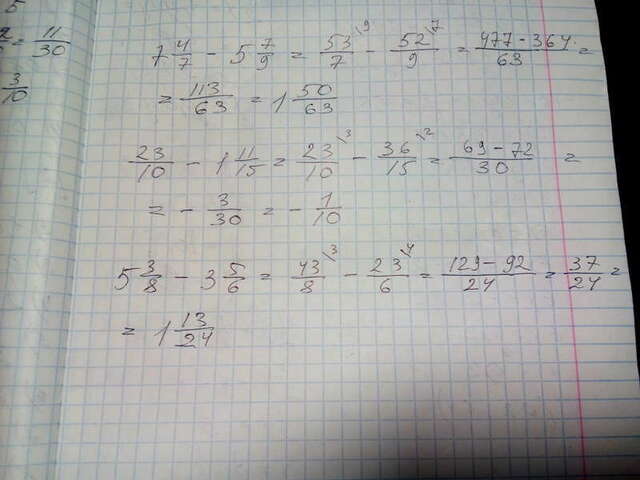 5
2/5 = 11/30
3/10
7 4/7 - 5 7/9 = 53/7 \9 - 52/9 \7 = (477 - 364)/63 =
= 113/63 = 1 50/63
23/10 - 1 11/15 = 23/10 \3 - 36/15 \2 = (69 - 72)/30 =
= - 3/30 = - 1/10
5 3/8 - 3 5/6 = 43/8 \3 - 23/6 \4 = (129 - 92)/24 = 37/24 =
= 1 13/24